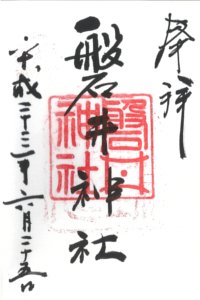 奉拝
磐井神社
平成二十三年六月二十五日
磐井神社